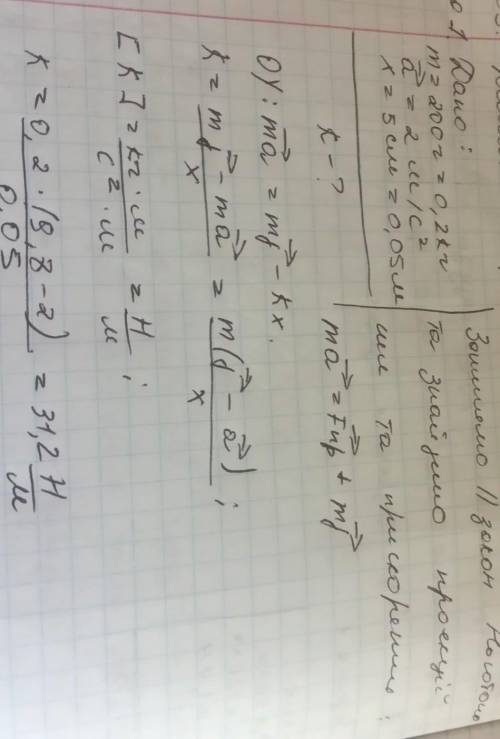 1. Дано:
m = 200 г = 0,2 кг
a⃗ = 2 м/с²
x = 5 см = 0,05 м
k - ?
Запишемо II закон Ньютона
та знайдемо проекції
сил та прискорень:
ma⃗ = F⃗пр + mg⃗
OY: ma⃗ = mg⃗ - kx.
k = (mg⃗ - ma⃗)/x = m(g⃗ - a⃗)/x ;
[k] = кг·м/с²·м = Н/м ;
k = 0,2·(9,8-2)/0,05 = 31,2 Н/м